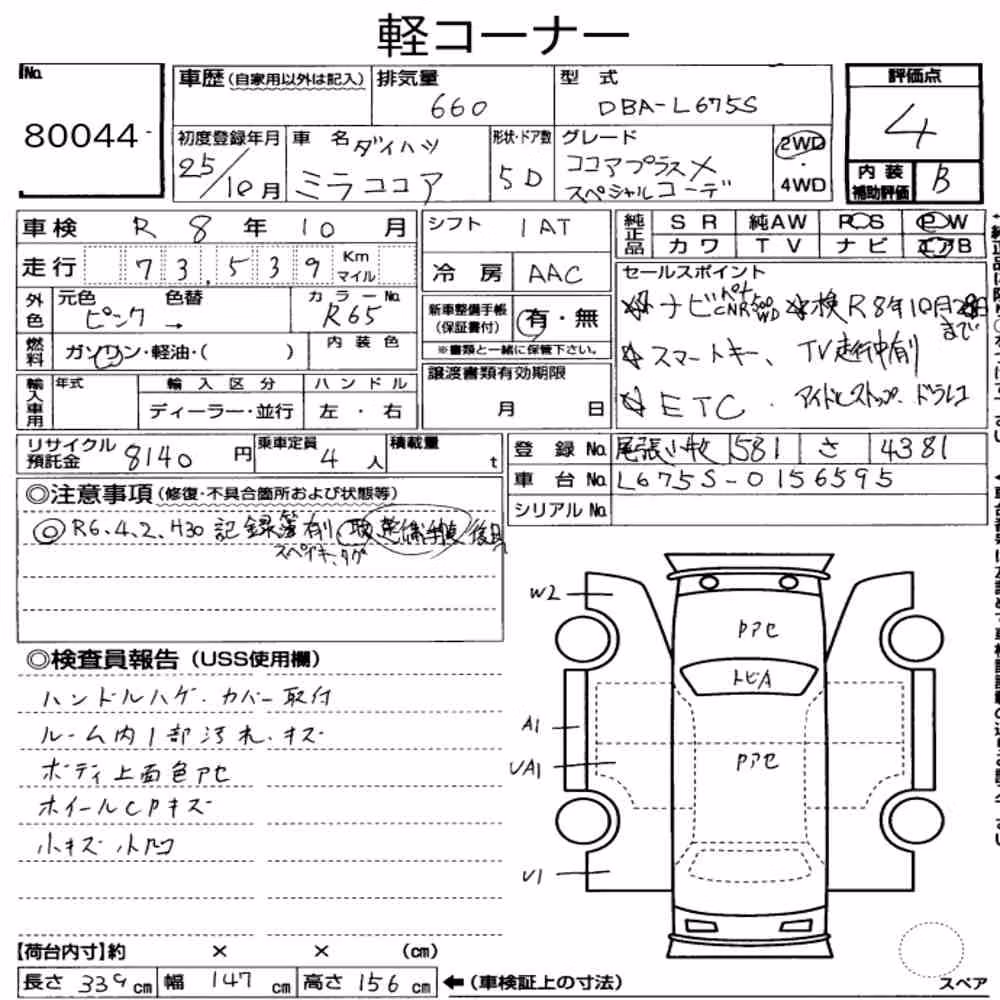 軽コーナー
No.
80044
車歴(自家用以外は記入)
排気量
660
型式
DBA-L675S
評価点
4
初度登録年月
25/10月
車名
ダイハツ
ミラココア
形状・ドア数
5D
グレード
ココアプラスX
スペシャルコーデ
2WD
・
4WD
内装
補助評価
B
車検 R 8 年 10 月
シフト 1AT
純正品
SR 純AW P○S P W
カワ TV ナビ エアB
走行 73,539 Km
マイル
冷房 AAC
セールスポイント
外色
元色 色替
ピンク →
カラーNo.
R65
新車整備手帳
(保証書付)
有・無
※書類と一緒に保管下さい。
☆ナビ CNR500WD ☆検R8年10月28日
まで
☆スマートキー、 TV走行中有り
☆ETC . アイドルストップ. ドラレコ
燃料
ガソリン・軽油・( )
内装色
輸入車用
年式
輸入区分
ハンドル
ディーラー・並行
左・右
譲渡書類有効期限
月 日
リサイクル
預託金 8140 円
乗車定員
4 人
積載量
t
登録No. 尾張小牧 581 さ 4381
車台No. L675S-0156595
シリアルNo.
◎注意事項(修復・不具合箇所および状態等)
◎R6.4.2.H30 記録簿有り 取
スペアキー、タグ
W2
Pアセ
トビA
A1
UA1
Pアセ
U1
◎検査員報告(USS使用欄)
ハンドルハゲ.カバー取付
ルーム内1部汚れ.キズ
ボディ上面色アセ
ホイールCPキズ
小キズ小凹
【荷台内寸】約 × × (cm)
長さ 339 cm 幅 147 cm 高さ 156 cm ←(車検証上の寸法)
スペア